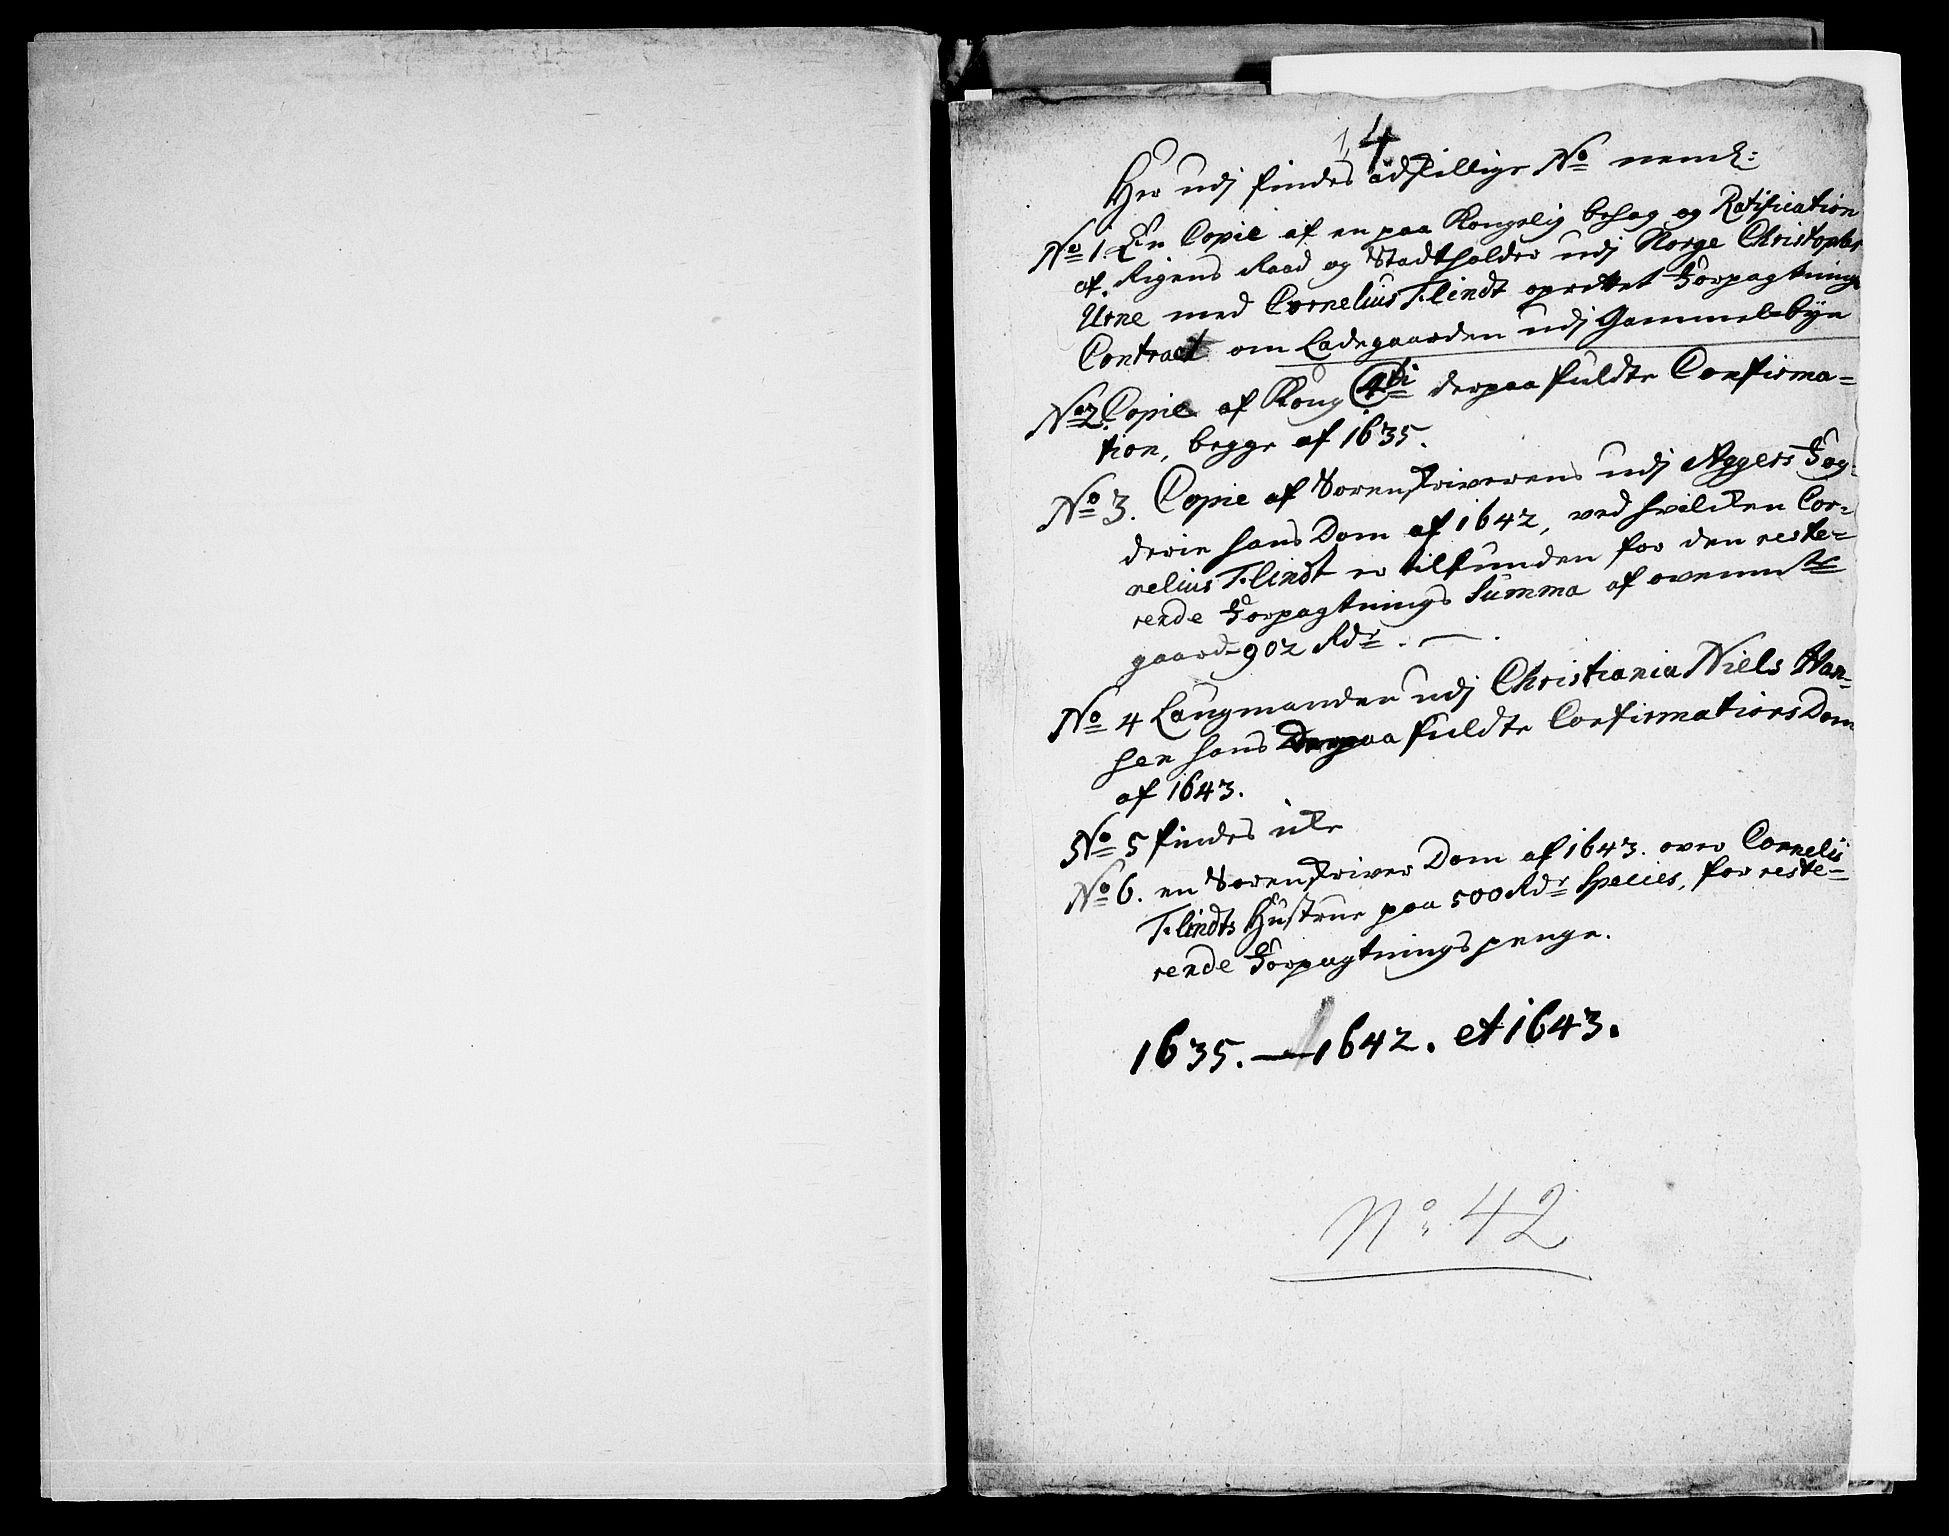 4
Her udj findes adskillige No neml:
No 1. En Copie af en paa Kongelig behag og Ratification
af Rigens Raad og Stadtholder udj Norge Christopher
Urne med Cornelius Flindt oprettet Forpagtnings
Contract om Ladegaarden udj Gammelbÿen
No 2. Copie af Kong C 4ti derpaa fuldte Confirma=
tion, begge af 1635.
No 3. Copie af Sorenskriverens udj Aggers Fog=
derie hans Dom af 1642, ved hvilken Cor=
nelius Flindt er tilfunden for den reste=
rende Forpagtnings Summa af ovennte
gaard 902 Rdr.
No 4 Laugmanden udj Christiania Niels Han=
sen hans Derpaa fuldte Confirmations Dom
af 1643.
No 5 findes icke
No 6. en Sorenskriver Dom af 1643. over Cornelii
Flindts Hustrue paa 500 Rdr Species, for reste=
rende Forpagtnings penge.
1635. — 1642. et 1643.
No. 42